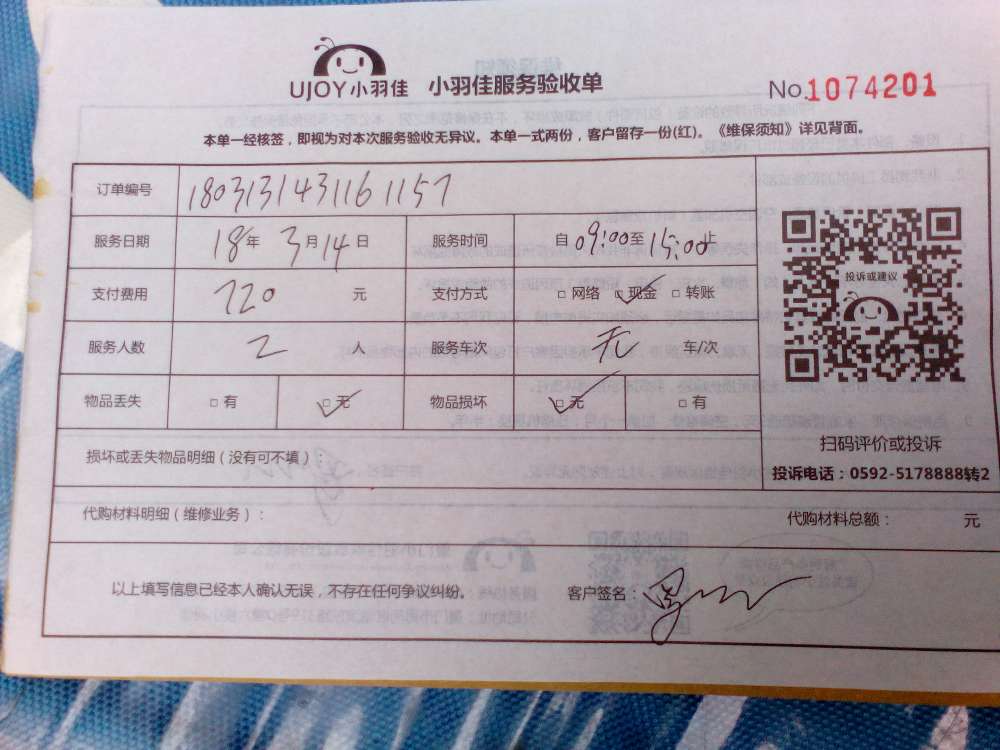 UJOY小羽佳 小羽佳服务验收单
No.1074201
本单一经核签，即视为对本次服务验收无异议。本单一式两份，客户留存一份(红)。《维保须知》详见背面。
订单编号 1803131431161157
服务日期 18年 3月14日 服务时间 自09:00至15:00止
支付费用 720 元 支付方式 □ 网络 □ 现金 □ 转账
服务人数 2 人 服务车次 无 车/次
物品丢失 □ 有 □ 无 物品损坏 □ 无 □ 有
投诉或建议
扫码评价或投诉
投诉电话：0592-5178888转2
损坏或丢失物品明细（没有可不填）：
代购材料明细（维修业务）： 代购材料总额： 元
以上填写信息已经本人确认无误，不存在任何争议纠纷。 客户签名：